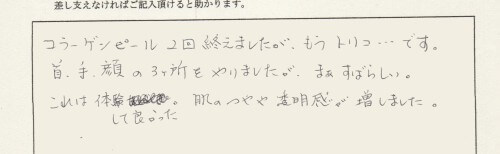 差し支えなければご記入頂けると助かります。
コラーゲンピール 2回 終えましたが、もう トリコ…です。
首、手、顔の 3ヶ所を やりましたが、まぁ すばらしい。
これは 体験 。 肌の つやや 透明感が 増しました。
して良かった